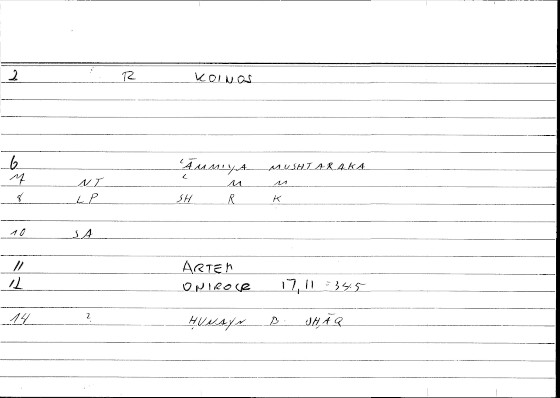 2 R KOINOS
6 ʿĀMMIYA MUSHTARAKA
7 NT ʿ M M
8 LP SH R K
10 SA
11 ARTEM
12 ONIROCR 17,11 = 345
14 2 ḤUNAYN B. ISḤĀQ